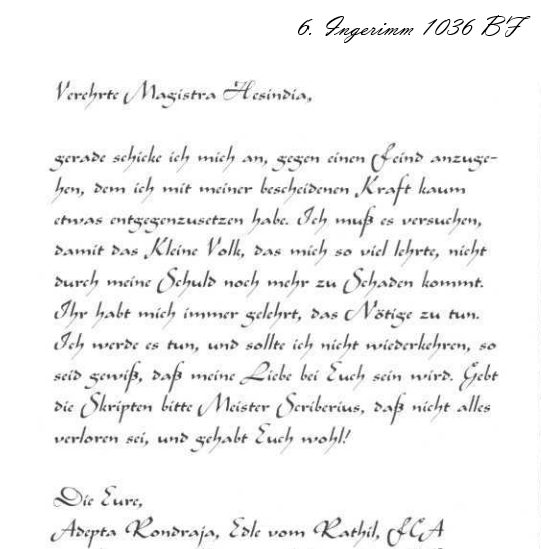 6. Ingerimm 1036 BF
Verehrte Magistra Hesindia,
gerade schicke ich mich an, gegen einen Feind anzuge-
hen, dem ich mit meiner bescheidenen Kraft kaum
etwas entgegenzusetzen habe. Ich muß es versuchen,
damit das Kleine Volk, das mich so viel lehrte, nicht
durch meine Schuld noch mehr zu Schaden kommt.
Ihr habt mich immer gelehrt, das Nötige zu tun.
Ich werde es tun, und sollte ich nicht wiederkehren, so
seid gewiß, daß meine Liebe bei Euch sein wird. Gebt
die Skripten bitte Meister Scriberius, daß nicht alles
verloren sei, und gehabt Euch wohl!
Die Eure,
Adepta Rondraja, Edle vom Rathil,